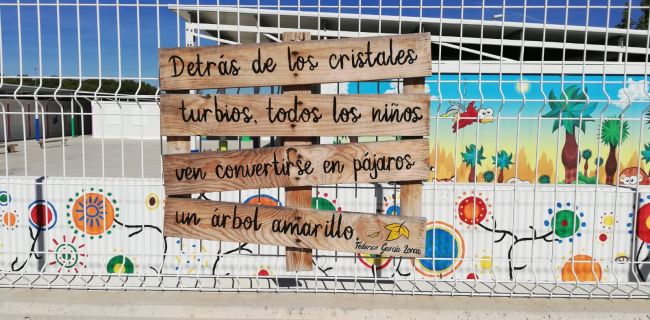 Detrás de los cristales
turbios, todos los niños
ven convertirse en pájaros
un árbol amarillo
Federico García Lorca